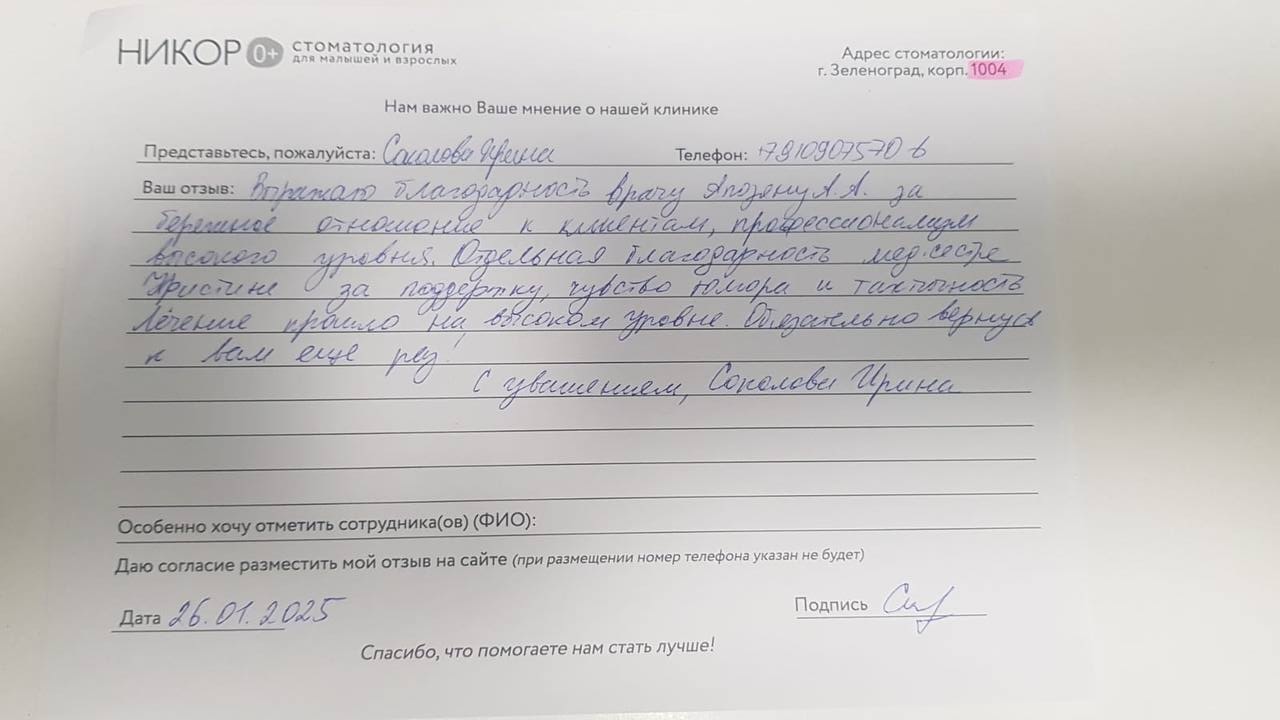 НИКОР 0+ стоматология
для малышей и взрослых
Адрес стоматологии:
г. Зеленоград, корп. 1004
Нам важно Ваше мнение о нашей клинике
Представьтесь, пожалуйста: Соколова Ирина
Телефон:
Ваш отзыв: Выражаю благодарность врачу А.А. за
бережное отношение к клиентам, профессионализм
высокого уровня. Отдельная благодарность медсестре
Кристине за поддержку, чувство юмора и тактичность
Лечение прошло на высоком уровне. Обязательно вернусь
к вам еще раз!
С уважением, Соколова Ирина
Особенно хочу отметить сотрудника(ов) (ФИО):
Даю согласие разместить мой отзыв на сайте (при размещении номер телефона указан не будет)
Дата 26.01.2025
Подпись
Спасибо, что помогаете нам стать лучше!